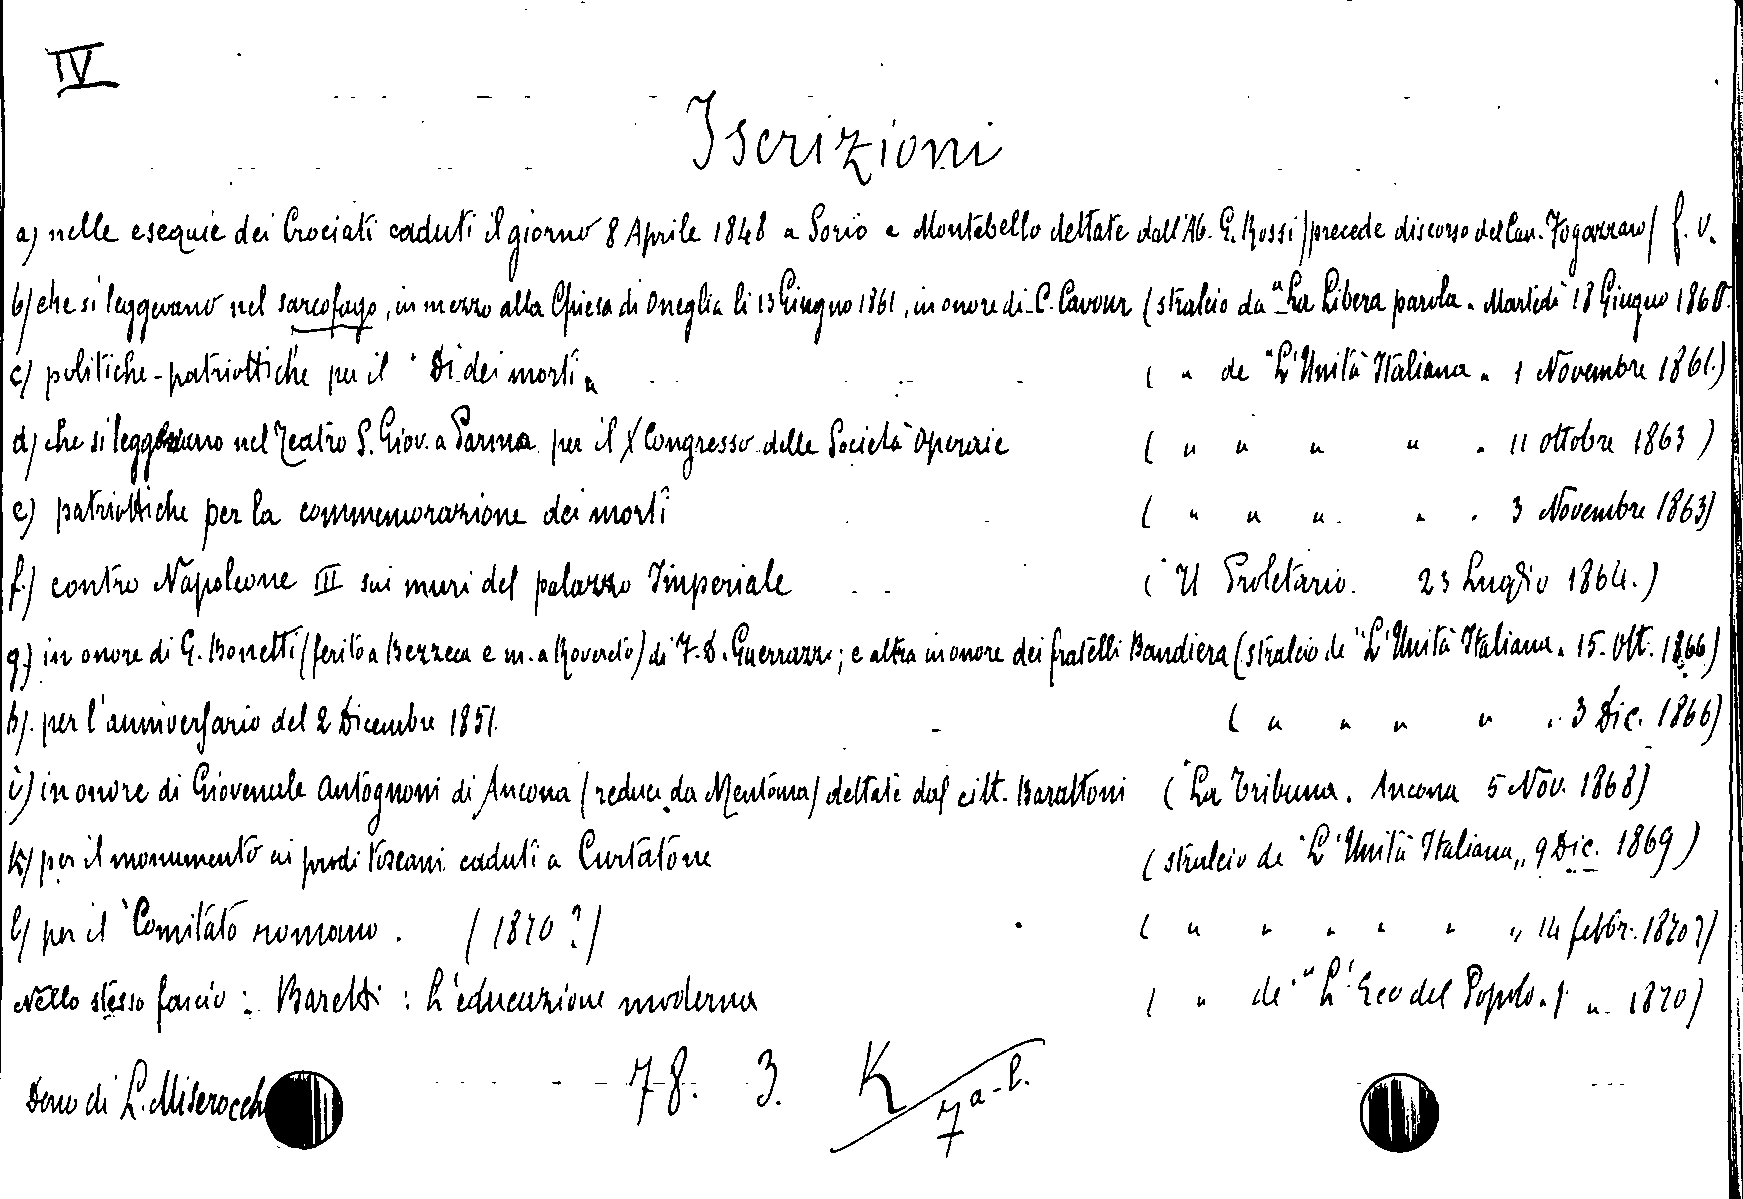 IV
Iscrizioni
a) nelle esequie dei Crociati caduti il giorno 8 Aprile 1848 a Sorio e Montebello dettate dall'Ab. G. Rossi (precede discorso del Can. Fogazzaro) f. v.
b) che si leggevano nel sarcofago, in mezzo alla Chiesa di Oneglia li 13 Giugno 1861, in onore di C. Cavour (stralcio da "La Libera parola" Martedì 18 Giugno 1868.
c) politiche-patriottiche per il "Dì dei morti" ( " de "L'Unità Italiana" 1 Novembre 1861.)
d) che si leggevano nel Teatro S. Giov. a Parma per il X Congresso delle Società Operaie ( " " " " " 11 ottobre 1863 )
e) patriottiche per la commemorazione dei morti ( " " " " " 3 Novembre 1863)
f.) contro Napoleone III sui muri del palazzo Imperiale ( Il Proletario. 23 Luglio 1864.)
g.) in onore di G. Bonetti (ferito a Bezzecca e m. a Rovereto) di F. D. Guerrazzi; e altra in onore dei fratelli Bandiera (stralcio de "L'Unità Italiana" 15. Ott. 1866)
h). per l'anniversario del 2 Dicembre 1851. ( " " " " " 3 Dic. 1866)
i) in onore di Giovenale Antognoni di Ancona (reduce da Mentana) dettate dal citt. Barattoni ( "La Tribuna. Ancona 5 Nov. 1868)
k) per il monumento ai prodi toscani caduti a Curtatone (stralcio de "L'Unità Italiana" 9 Dic. 1869 )
l) per il "Comitato romano. (1870 ?) ( " " " " " " 14 febbr. 1870?)
Nello stesso fascio: Baretti: L'educazione moderna ( " de "L'Eco del Popolo. 1870)
Dono di L. Miserocch
78. 3. K 7 a-l.